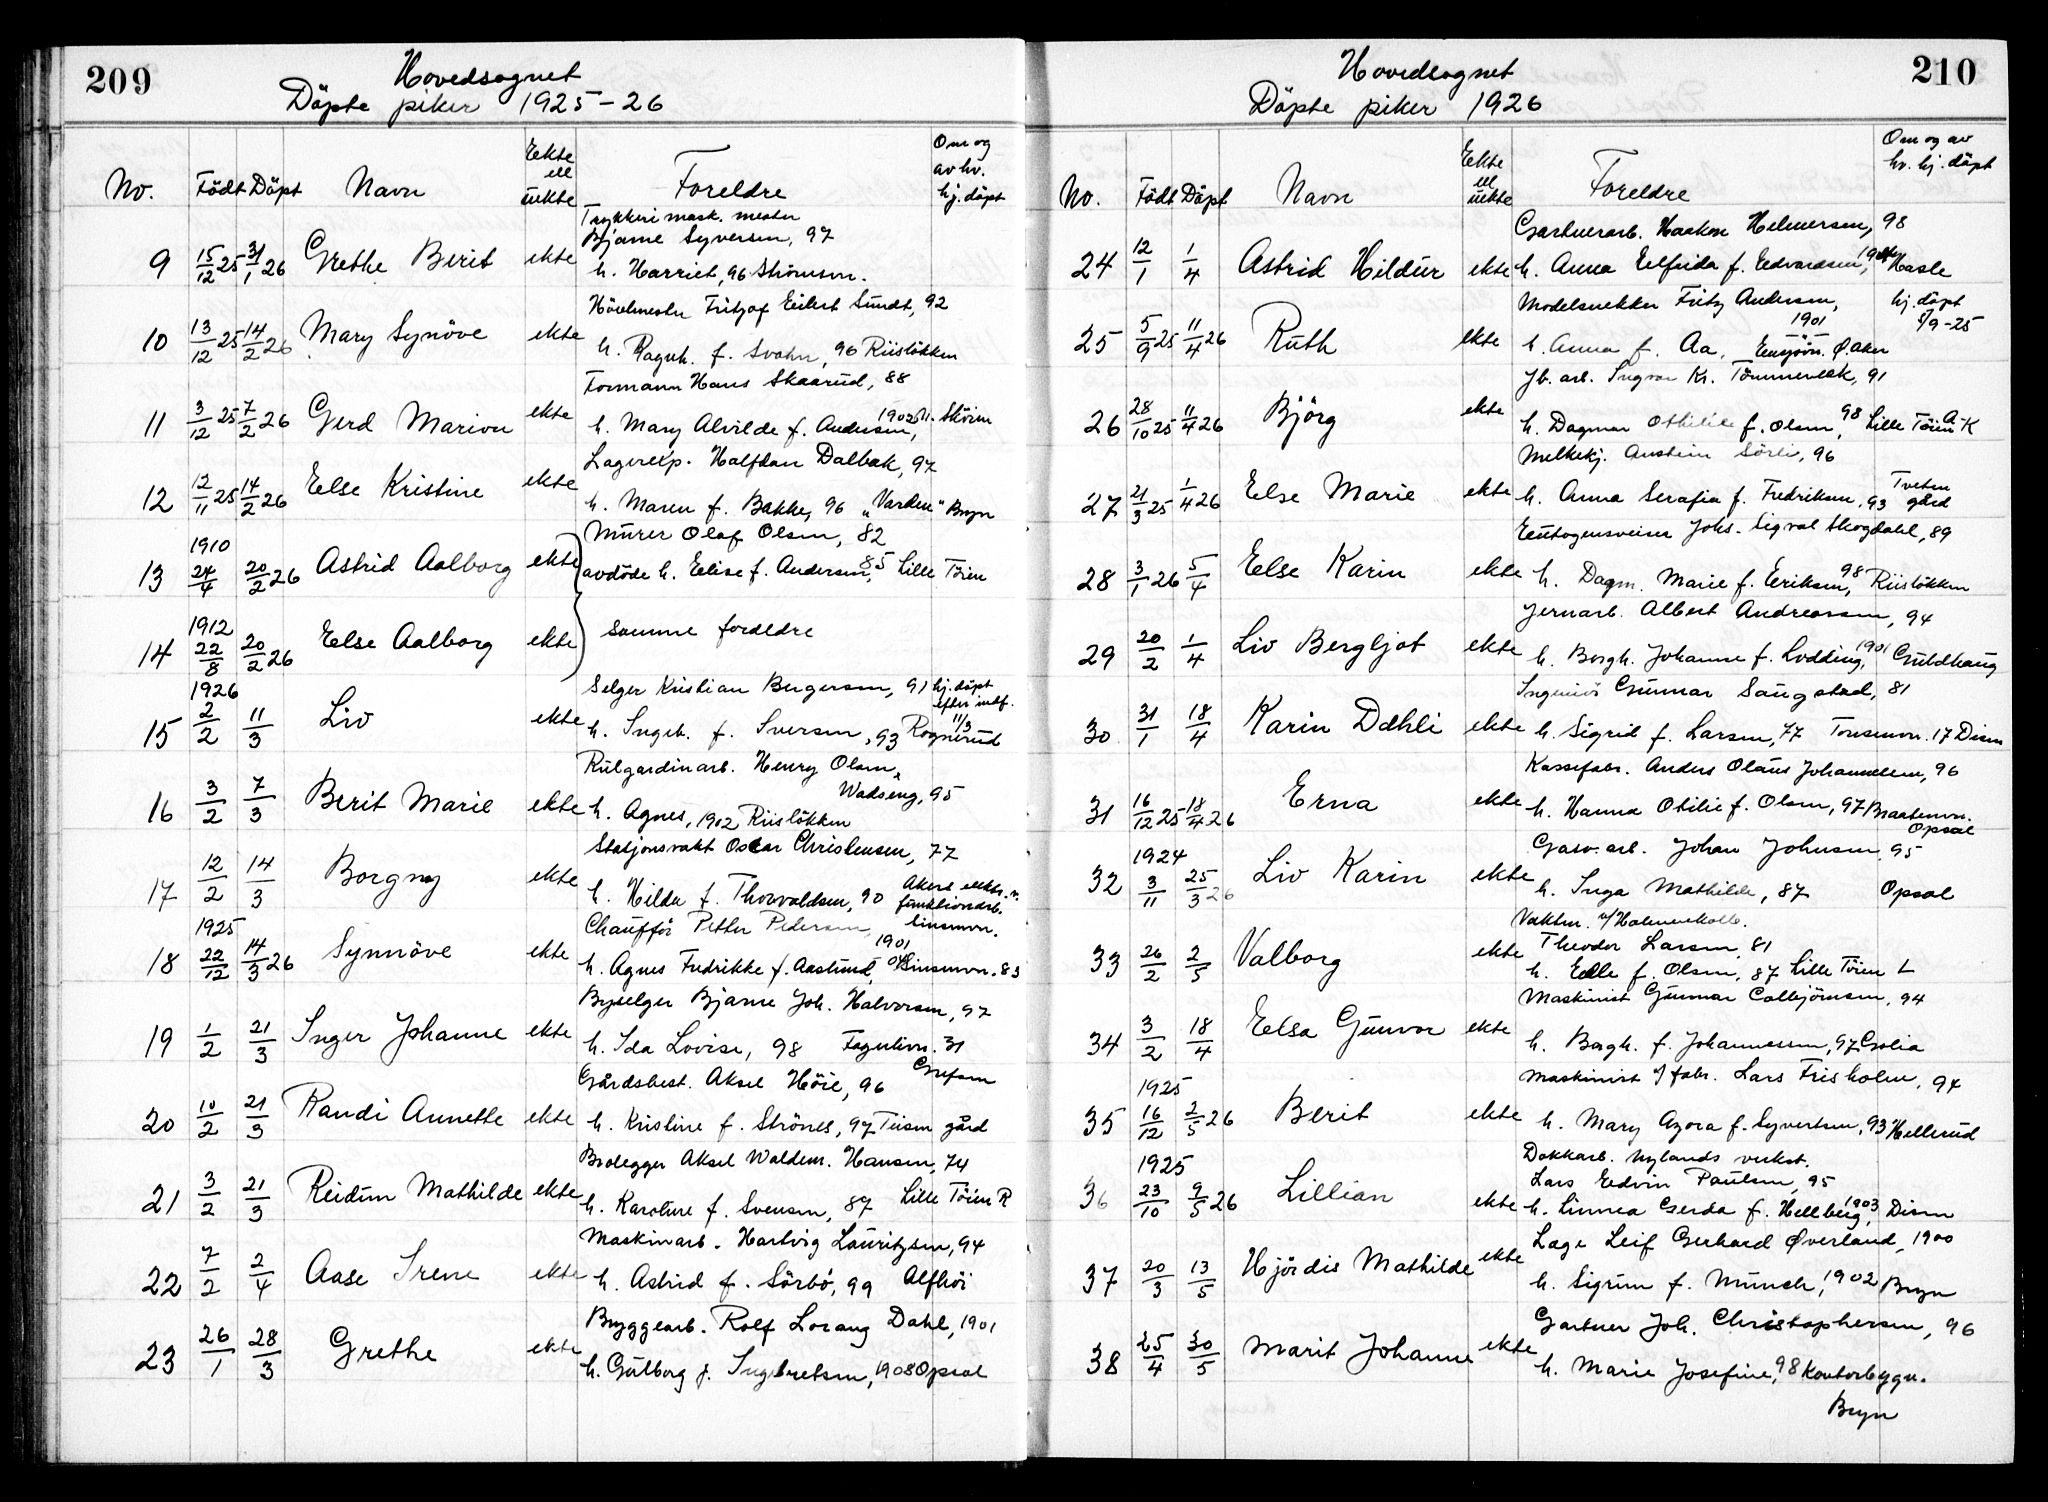 209
Hovedsognet
Döpte piker 1925-26
No. Födt Döpt Navn Ekte ell uekte Foreldre Om og av hv. hj. döpt
Trykkerimask. mester
Bjarne Syversen, 97
9 15/12 25 31/1 26 Grethe Berit ekte h. Harriet, 96 Strömsvn.
Hövlmester Fritjof Eilert Sundt, 92
10 13/12 25 14/2 26 Mary Synöve ekte h. Ragnh. f. Svahn, 96 Riislökken
Formann Hans Skaarud, 88
11 3/12 25 7/2 26 Gerd Marion ekte h. Mary Alvilde f. Andersen, 1902
Lagerexp. Halfdan Dalbak, 97
12 12/11 25 14/2 26 Else Kristine ekte h. Maren f. Bakke, 96 "Varden" Bryn
Murer Olaf Olsen, 82
13 1910 24/4 20/2 26 Astrid Aalborg ekte avdöde h. Elise f. Andersen, 85, Lille Töien
14 1912 22/8 20/2 26 Else Aalborg ekte samme foreldre
Selger Kristian Bergersen, 91 hj. döpt efter innf.
15 1926 2/2 11/3 Liv ekte h. Ingeb. f. Iversen, 93 Rognerud 11/3
Rulgardinarb. Henry Olsen,
Wadseng, 95
16 3/2 7/3 Berit Marie ekte h. Agnes, 1902 Riislökken
Stasjonsvakt Oscar Christensen, 77
17 12/2 14/3 Borgny ekte h. Hilda f. Thorvaldsen, 90 Akers elektr. funktionærb.
Chaufför Petter Pedersen, 1901
18 1925 22/12 14/3 26 Synnöve ekte h. Agnes Fredrikke f. Aaslund, 83
Byselger Bjarne Joh. Halvorsen, 97
19 1/2 21/3 Inger Johanne ekte h. Ida Lovise, 98 Fagerlivn. 31
Grefsen
Gårdsbest. Aksel Höie, 96
20 10/2 21/3 Randi Annette ekte h. Kristine f. Strönes, 97 Teisen gård
Brolegger Aksel Waldem. Hansen, 74
21 3/2 21/3 Reidun Mathilde ekte h. Karoline f. Svensen, 87 Lille Töien R
Maskinarb. Hartvig Lauritzsen, 94
22 7/2 2/4 Aase Irene ekte h. Astrid f. Sörbö, 99 Alfhöi
Bryggearb. Rolf Lorang Dahl, 1901
23 26/1 28/3 Grethe ekte h. Gulborg f. Ingebretsen, 1908 Opsal
210
Hovedsognet
Döpte piker 1926
No. Födt Döpt Navn Ekte ell uekte Foreldre Om og av hv. hj. döpt
Gartnerarb. Haakon Helmersen, 98
24 12/1 1/4 Astrid Hildur ekte h. Anna Elfrida f. Edvardsen, Hasle
Modelsnekker Fritz Andersen, hj. döpt
25 5/9 25 11/4 26 Ruth ekte h. Anna f. Aa, 1901 Ensjövn. Ø. Aker 5/9-25
Jb. arb. Ingvar Kr. Tömmervek, 91
26 28/10 25 11/4 26 Björg ekte h. Dagmar Othilie f. Olsen, 98 Lille Töien A-K
Melkekj. Austein Sörli, 96
27 21/3 25 1/4 26 Else Marie ekte h. Anna Serafia f. Fredriksen, 93 Tveten gård
Entogensveiser Johs. Sigval Skogdahl, 89
28 3/1 26 5/4 Else Karin ekte h. Dagm. Marie f. Eriksen, 98 Riislökken
Jernarb. Albert Andreassen, 94
29 20/2 1/4 Liv Bergljot ekte h. Borgh. Johanne f. Lodding, 1901 Guldhaug
Ingeniör Gunnar Saugstad, 81
30 31/1 18/4 Karin Dæhli ekte h. Sigrid f. Larsen, 77 Tonsenvn. 17 Disen
Kassefabr. Anders Olaus Johannesen, 96
31 16/12 25 18/4 26 Erna ekte h. Hanna Otilie f. Olsen, 97 Braatenvn. Opsal
Gasv. arb. Johan Johnsen, 95
32 1924 3/11 25/3 26 Liv Karin ekte h. Inga Mathilde, 87 Opsal
Vaktm. v/Holmenkolb.
Theodor Larsen, 81
33 26/2 2/5 Valborg ekte h. Elle f. Olsen, 87 Lille Töien L
Maskinist Gunnar Colbjörnsen, 94
34 3/2 18/4 Elsa Gunvor ekte h. Borgh. f. Johannessen, 97 Golia
Maskinist v/ fabr. Lars Frisholm, 94
35 1925 16/12 2/5 26 Berit ekte h. Mary Azora f. Syvertsen, 93 Hellerud
Dokkarb. Nylands verkst.
Lars Edvin Paulsen, 95
36 1925 23/10 9/5 26 Lillian ekte h. Linnea Gerda f. Hellberg, 1903, Disen
Lage Leif Gerhard Øverland, 1900
37 20/3 13/5 Hjördis Mathilde ekte h. Sigrun f. Munch, 1902 Bryn
Gartner Joh. Christophersen, 96
38 25/4 30/5 Marit Johanne ekte h. Marie Josefine, 98 Kontorbygn.
Bryn